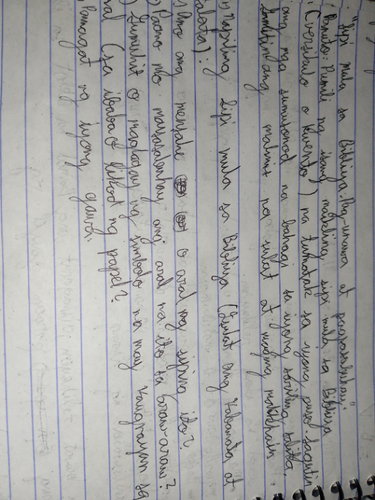 "Sipi mula sa Bibliya: Pag-unawa at pagsasabuhay"
Panuto: Pumili ng isang maikling sipi mula sa Bibliya
(versikulo o kwento) na tumatak sa iyong puso. Sagutin
ang mga sumusunod na bahagi sa iyong sariling salita.
ang malinis na sulat at maging malikhain.
Napiling sipi mula sa Bibliya (Isulat ang Kabanata at
talata):
Ano ang mensahe o aral ng siping ito?
Paano mo maisasabuhay ang aral na ito sa araw-araw?
Gumuhit o magbigay ng simbolo na may kaugnayan sa
aral (sa ibaba o likod ng papel)?
ng iyong gawa.